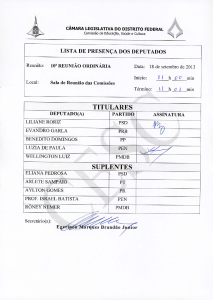 CÂMARA LEGISLATIVA DO DISTRITO FEDERAL
Comissão de Educação, Saúde e Cultura
LISTA DE PRESENÇA DOS DEPUTADOS
Reunião: 10ª REUNIÃO ORDINÁRIA Data: 18 de setembro de 2013
Local: Sala de Reunião das Comissões Início: 11 h 00 min
Término: 11 h 03 min
TITULARES
DEPUTADO(A) PARTIDO ASSINATURA
LILIANE RORIZ PSD
EVANDRO GARLA PRB
BENEDITO DOMINGOS PP
LUZIA DE PAULA PEN
WELLINGTON LUIZ PMDB
SUPLENTES
ELIANA PEDROSA PSD
ARLETE SAMPAIO PT
AYLTON GOMES PR
PROF. ISRAEL BATISTA PEN
RÔNEY NEMER PMDB
Secretário(a):
Egerineu Marques Brandão Junior
CESC